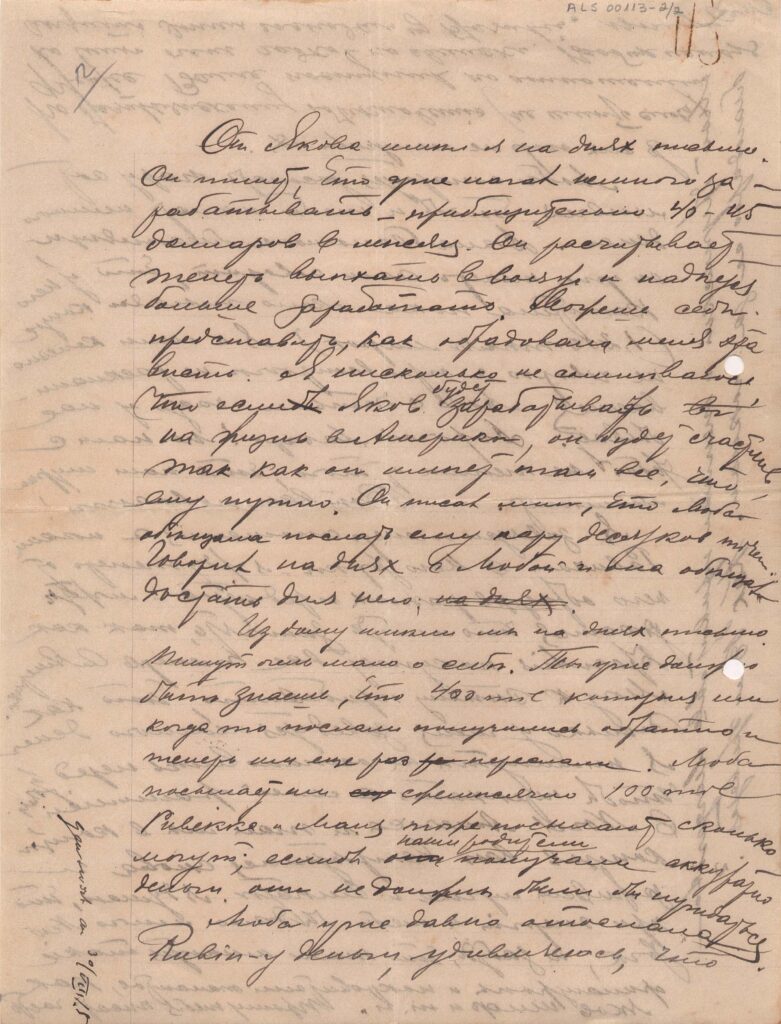 ALS 00113-2/2
113
2/
От Якова имели я на днях письмо.
Он пишет, что уже начал немного за-
рабатывать – приблизительно 40–45
долларов в мѣсяц. Он расчитывает
теперь выехать в вояж и надѣется
больше заработать. Можешь себѣ
представить, как обрадовала меня эта
вѣсть. Я нисколько не сомнѣваюсь,
что если Яков будет зарабатывать
на жизнь в Америкѣ, он будет счастлив,
так как он имѣет там все, что
ему нужно. Он писал мнѣ, что Люба
обѣщала послать ему пару десятков
Говорил на днях с Любой и она обѣщала
достать для него, на днях.
Из дому имѣли мы на днях письмо.
Пишут очень мало о себѣ. Ты уже должно
быть знаешь, что 400 которыя им
когда то послали получились обратно и
теперь им еще раз переслали. Люба
посылает им ежемѣсячно 100
Ривекка и Маня тоже посылают сколько
могут; если б наши родители получали аккуратно
деньги они не должны были бы нуждаться.
Люба уже давно отослала
Rubin-у деньги, удивляюсь, что